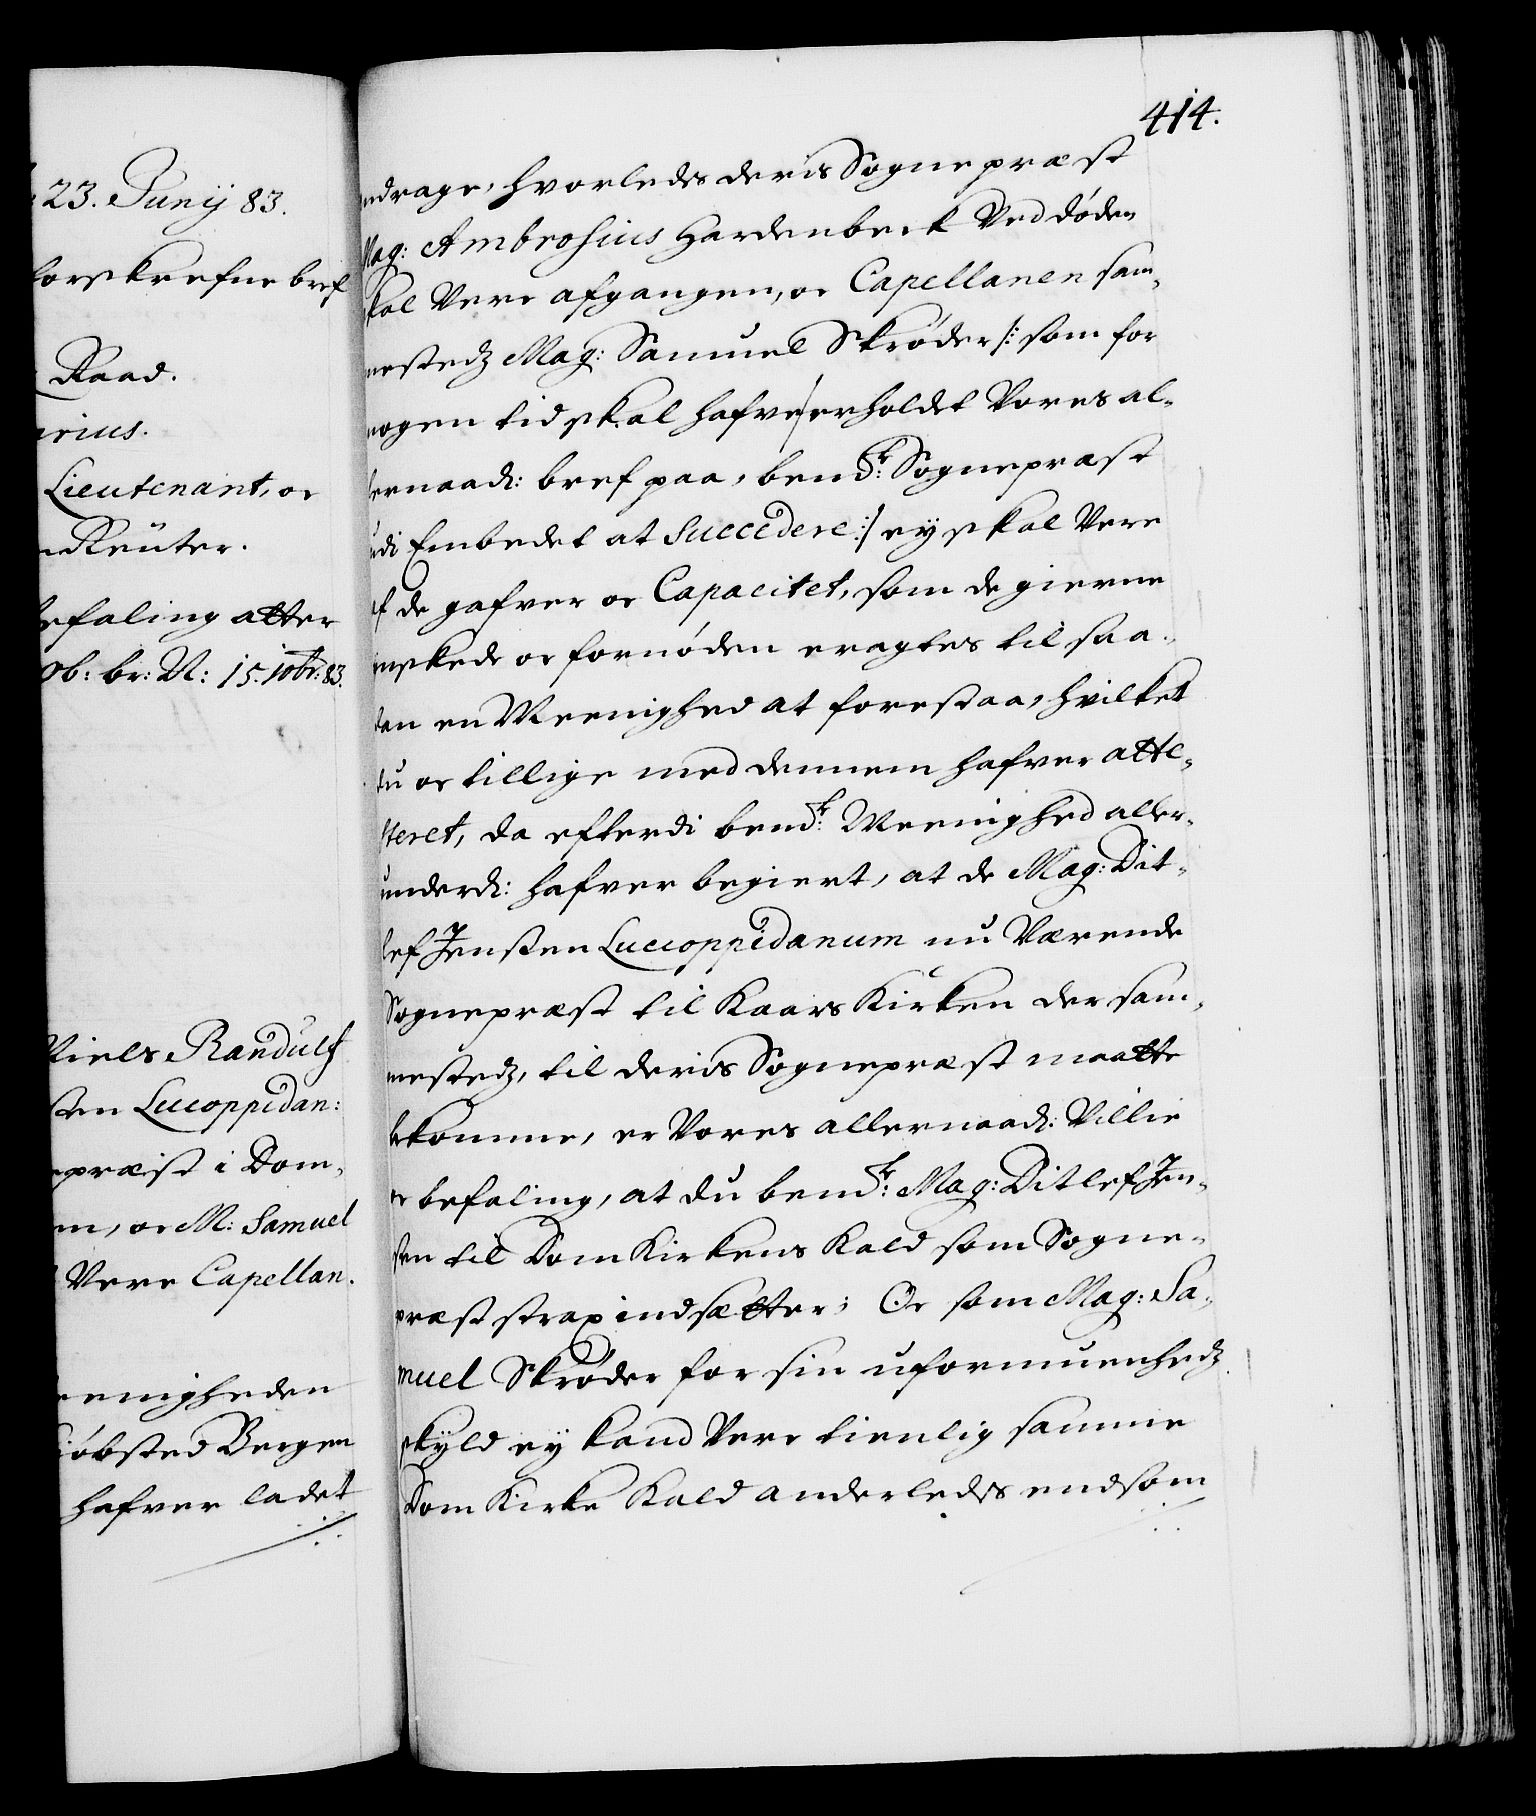 23. Junij 83.
forskrefne bref
Raad.
arius.
Lieutenant, oc
Reüter.
befaling atter
ob: br: N: 15. 10br: 83.
Niels Randulf
sten Lucoppidan:
epræst i Dom,
en, oc M: Samuel
Vere Capellan.
eenigheden
iöbsted Bergen
hafver ladet
414.
ndrage, hvorledes deris Sognepræst
Mag: Ambrosius Hardenbeck Ved döden
skal Vere afgangen, oc Capellanen sam,
mestedz Mag: Samuel Skröder /: som for
nogen tid skal hafve erholdet Vores al,
lernaad: bref paa, bemte: Sognepræst
udi Embedet at Succedere :/ ey skal Vere
af de gafver oc Capacitet, som de gierne
önskede oc fornöden eragtes til saa,
dan en Meenighed at forestaa, hvilket
du oc tillige med dennem hafver atte,
steret, da efterdi bemte: Meenighed aller,
underd: hafver begiert, at de Mag: Dit,
lef Jensten Luccoppidanum nu Værende
Sognepræst til Kaars Kirken der sam,
mestedz, til deris Sognepræst maatte
bekomme, er Vores allernaad: Villie
oc befaling, at du bemte: Mag: Ditlef Jen,
sten til Dom Kirkens Kald som Sogne,
præst strax indsætter; Oc som Mag: Sa,
muel Skröder for sin uformuenhedz
skyld ey kand Vere tienlig samme
Dom Kirke Kald anderledes endsom